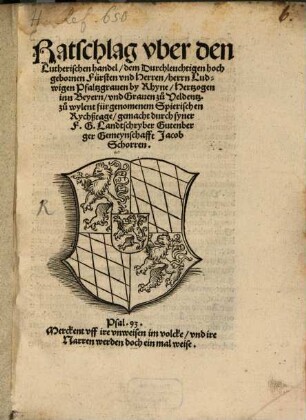 6.
Ratschlag vber den
Lutherischen handel / dem Durchleuchtigen hoch
gebornen Fürsten vnd Herren / herrn Lud-
wigen Pfaltzgrauen by Rhyne / Hertzogen
inn Beyern / vnd Grauen zů Veldentz /
zů wylent fürgenomenem Spierischen
Rychßtage / gemacht durch syner
F. G. Landtschryber Gutenber
ger Gemeynschafft Jacob
Schorren.
R
Psal. 93.
Merckent vff ire vnweisen im volcke / vnd ire
Narren werden doch ein mal weise.